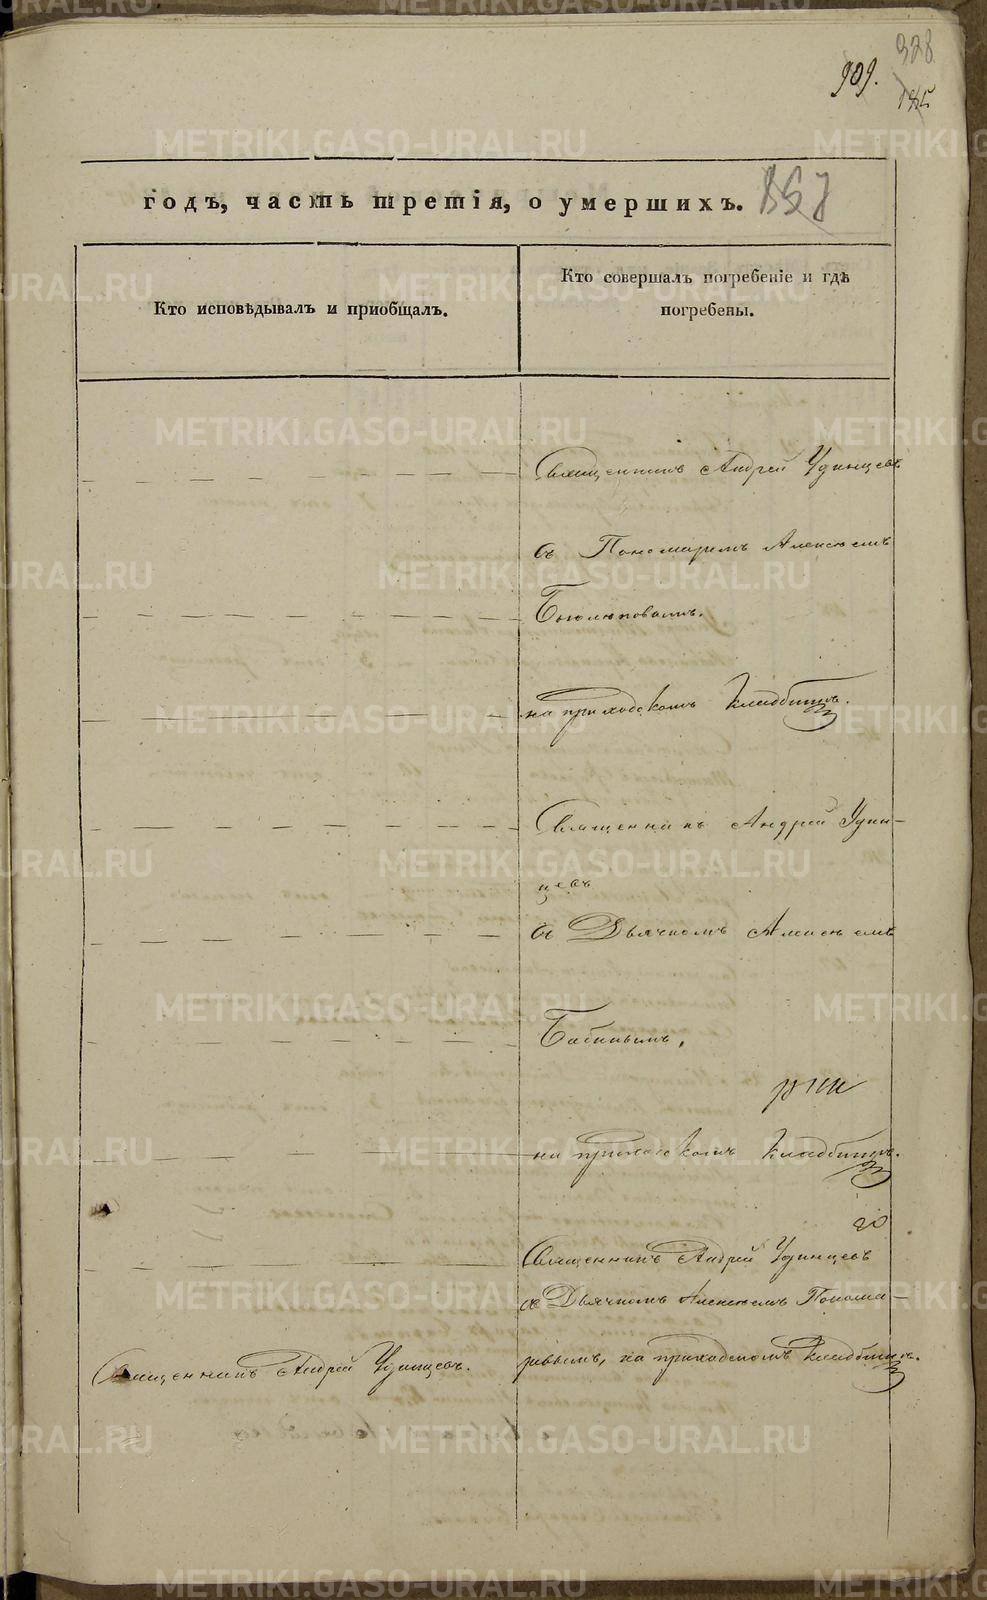 909.
328
годъ, часть третія, о умершихъ.
Кто исповѣдывалъ и приобщалъ.
Кто совершалъ погребеніе и гдѣ
погребены.
Священникъ Андрей Удинцевъ
съ Пономаремъ Алексѣемъ
Боголѣповымъ.
на приходскомъ кладбищѣ.
Священникъ Андрей Удин-
цевъ
съ Дьячкомъ Алексѣемъ
Бабинымъ,
на приходскомъ кладбищѣ.
Священникъ Андрей Удинцевъ
съ Дьячкомъ Алексѣемъ Понома-
ревымъ, на приходскомъ кладбищѣ.
Священникъ Андрей Удинцевъ.
METRIKI.GASO-URAL.RU